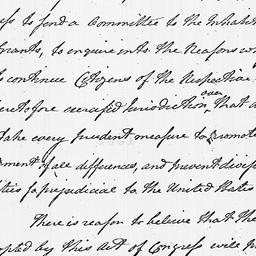 to send a Committee to the Inhabit
Grants, to enquire into the Reasons wh
continue Citizens of the Respective
heretofore exercised Jurisdiction over, that a
Take every Prudent measure to promote
ment of all differences, and prevent divis
ties so prejudicial to the United States
There is reason to believe that the
opted by this Act of Congress will